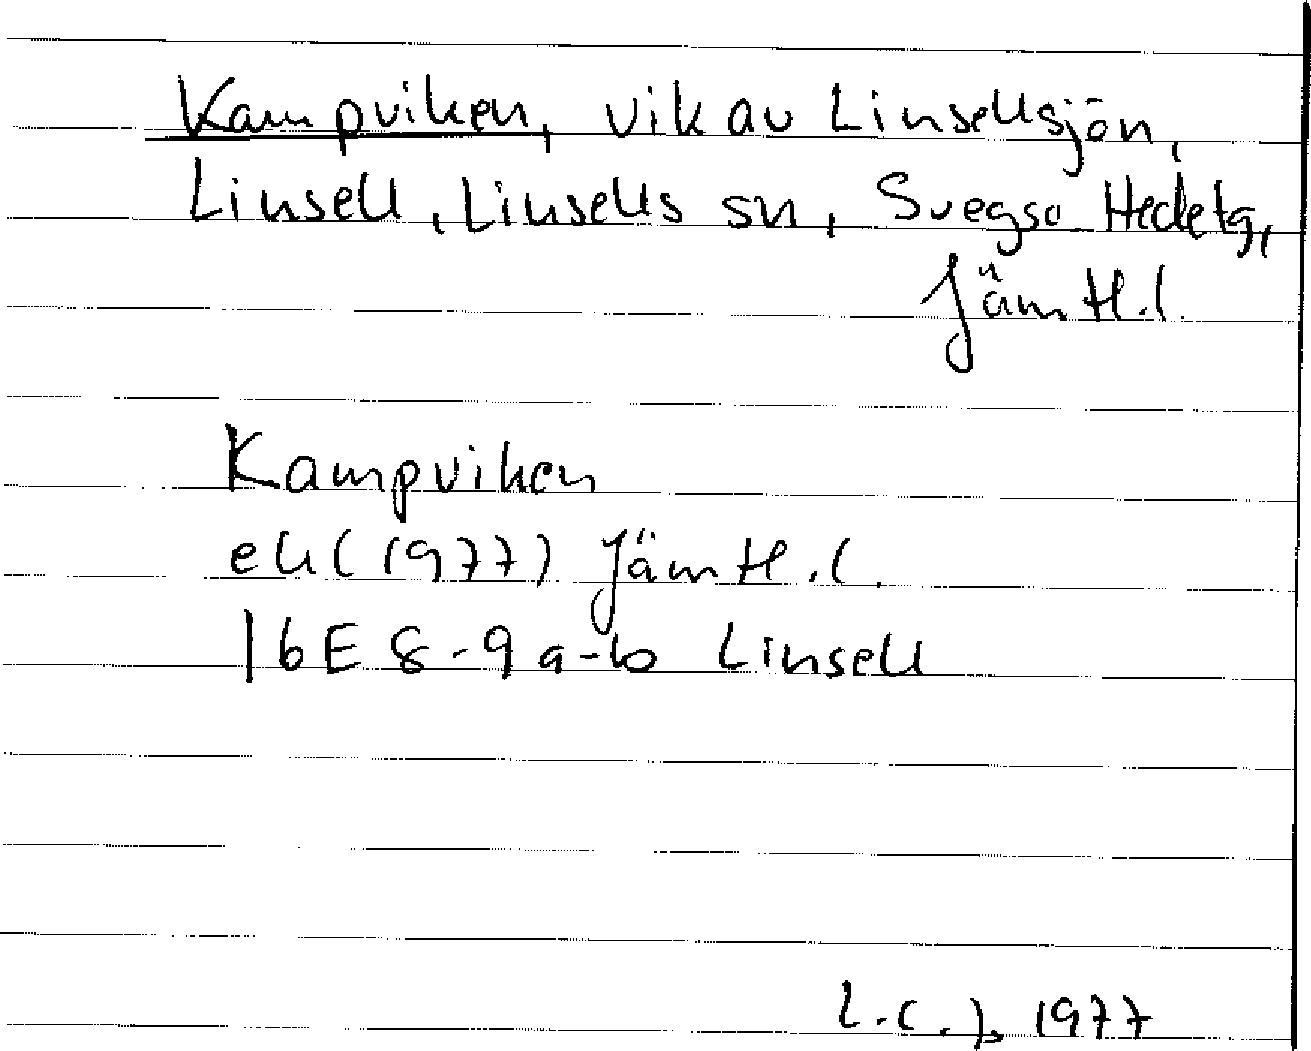 Kampviken, vik av Linsellsjön,
Linsell, Linsells sn, Svegs o Hedetg,
Jämtl.l.
Kampviken
ek (1977) Jämtl.l.
16E 8-9 a-b Linsell
1977